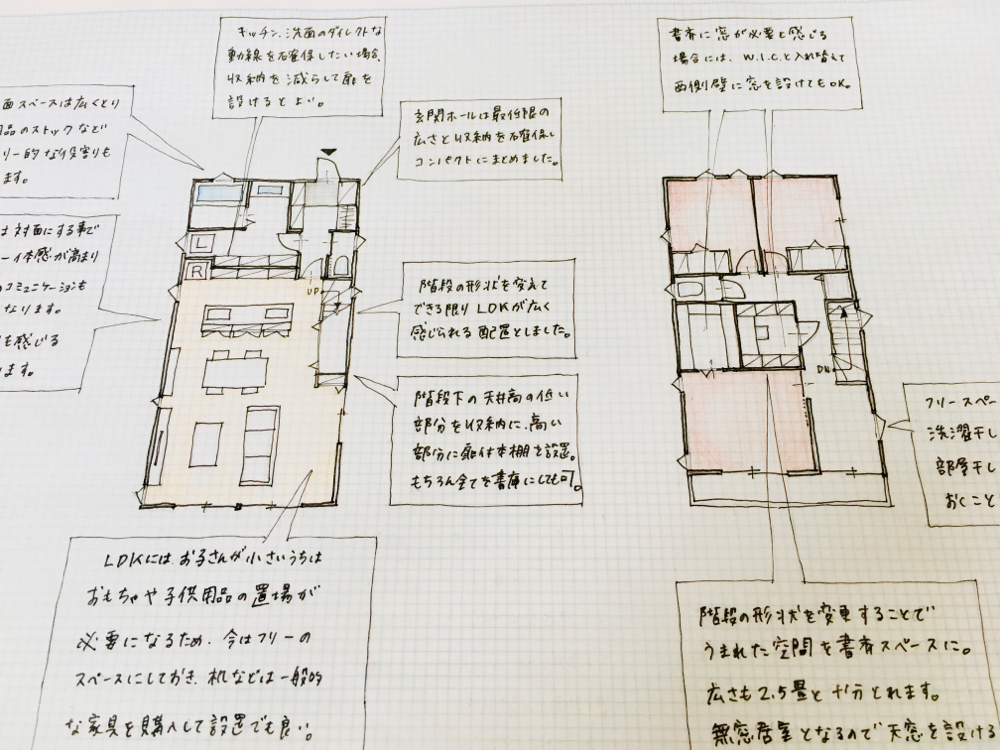 キッチン、洗面のダイレクトな
動線を確保したい場合、
収納を減らして扉を
設けるとよい。
書斎に窓が必要と感じる
場合には、W.I.Cと入れ替えて
西側壁に窓を設けてもOK。
面スペースは広くとり
品のストックなど
リー的な役割りも
ます。
玄関ホールは最低限の
広さと収納を確保し
コンパクトにまとめました。
は対面にする事で
一体感が高まり
のコミュニケーションも
なります。
を感じる
ます。
階段の形状を変えて
できる限りLDKが広く
感じられる配置としました。
階段下の天井高の低い
部分を収納に、高い
部分に扉付本棚を設置。
もちろん全てを書庫にしても可。
L
R
UP
DN
フリースペー
洗濯干し
部屋干し
おくこと
LDKには、お子さんが小さいうちは
おもちゃや子供用品の置場が
必要になるため、今はフリーの
スペースにしておき、机などは一般的
な家具を購入して設置でも良い。
階段の形状を変更することで
うまれた空間を書斎スペースに。
広さも2.5畳と十分とれます。
無窓居室となるので天窓を設ける